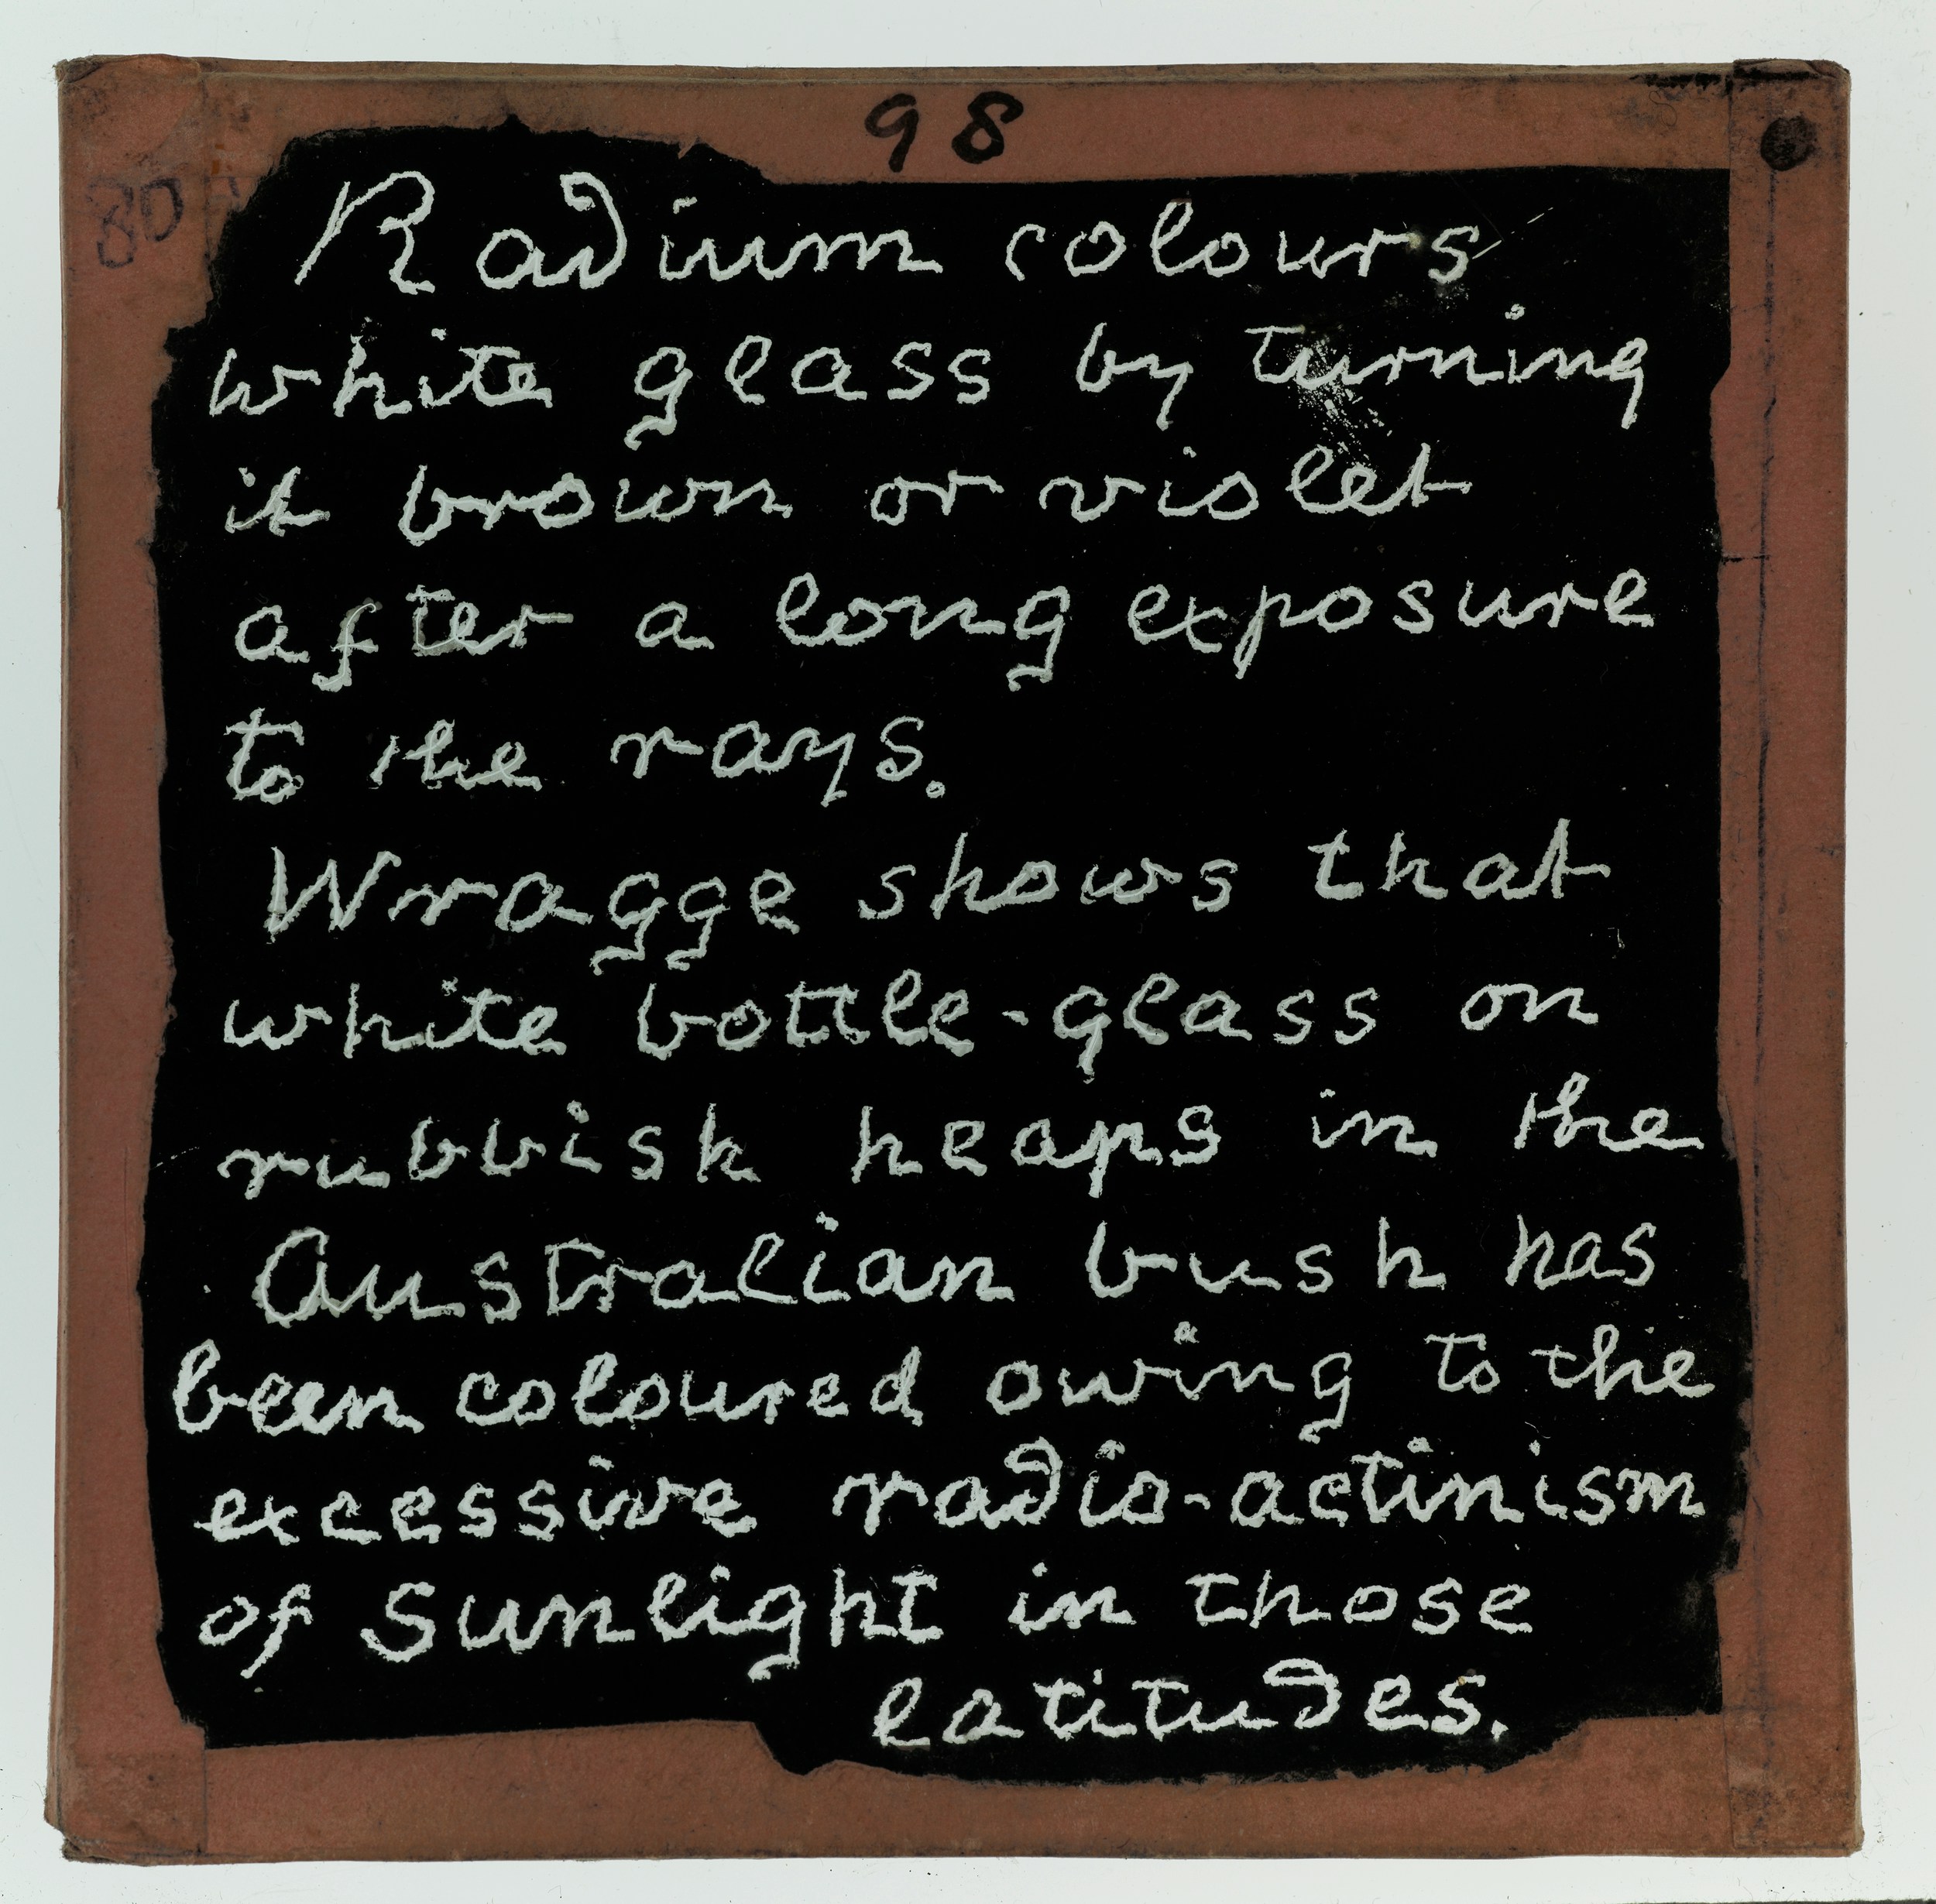 98
80
Radium colours
white glass by turning
it brown or violet
after a long exposure
to the rays.
Wragge shows that
white bottle-glass on
rubbish heaps in the
Australian bush has
been coloured owing to the
excessive radio-actinism
of Sunlight in those
latitudes.